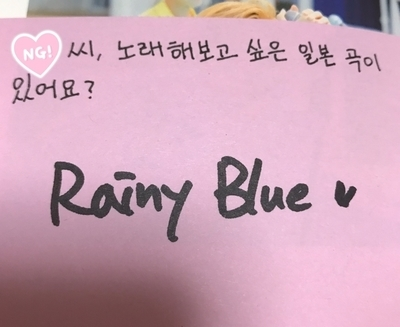 NG! 씨, 노래해보고 싶은 일본 곡이
있어요?
Rainy Blue ♥